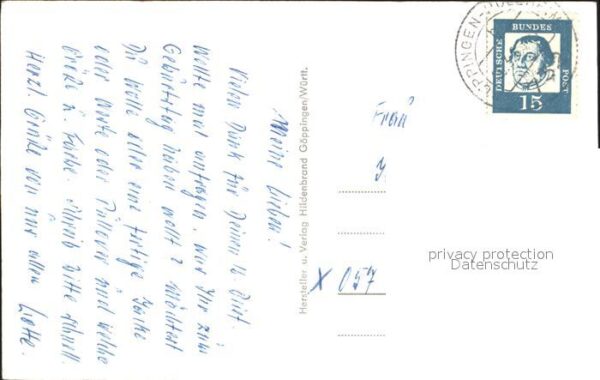 Meine Lieben!
Vielen Dank für Deinen lb Brief.
Wollte mal anfragen, was Ihr zum
Geburtstag haben wollt? Möchtest
Du Wolle oder eine fertige Jacke
oder Weste oder Pullover und welche
Größe u. Farbe. Schreib bitte schnell.
Herzl. Grüße von uns allen Lotte.
Hersteller u. Verlag Hildenbrand Göppingen/Württ.
DEUTSCHE BUNDES POST
15
Frau
J.
X 057
privacy protection
Datenschutz